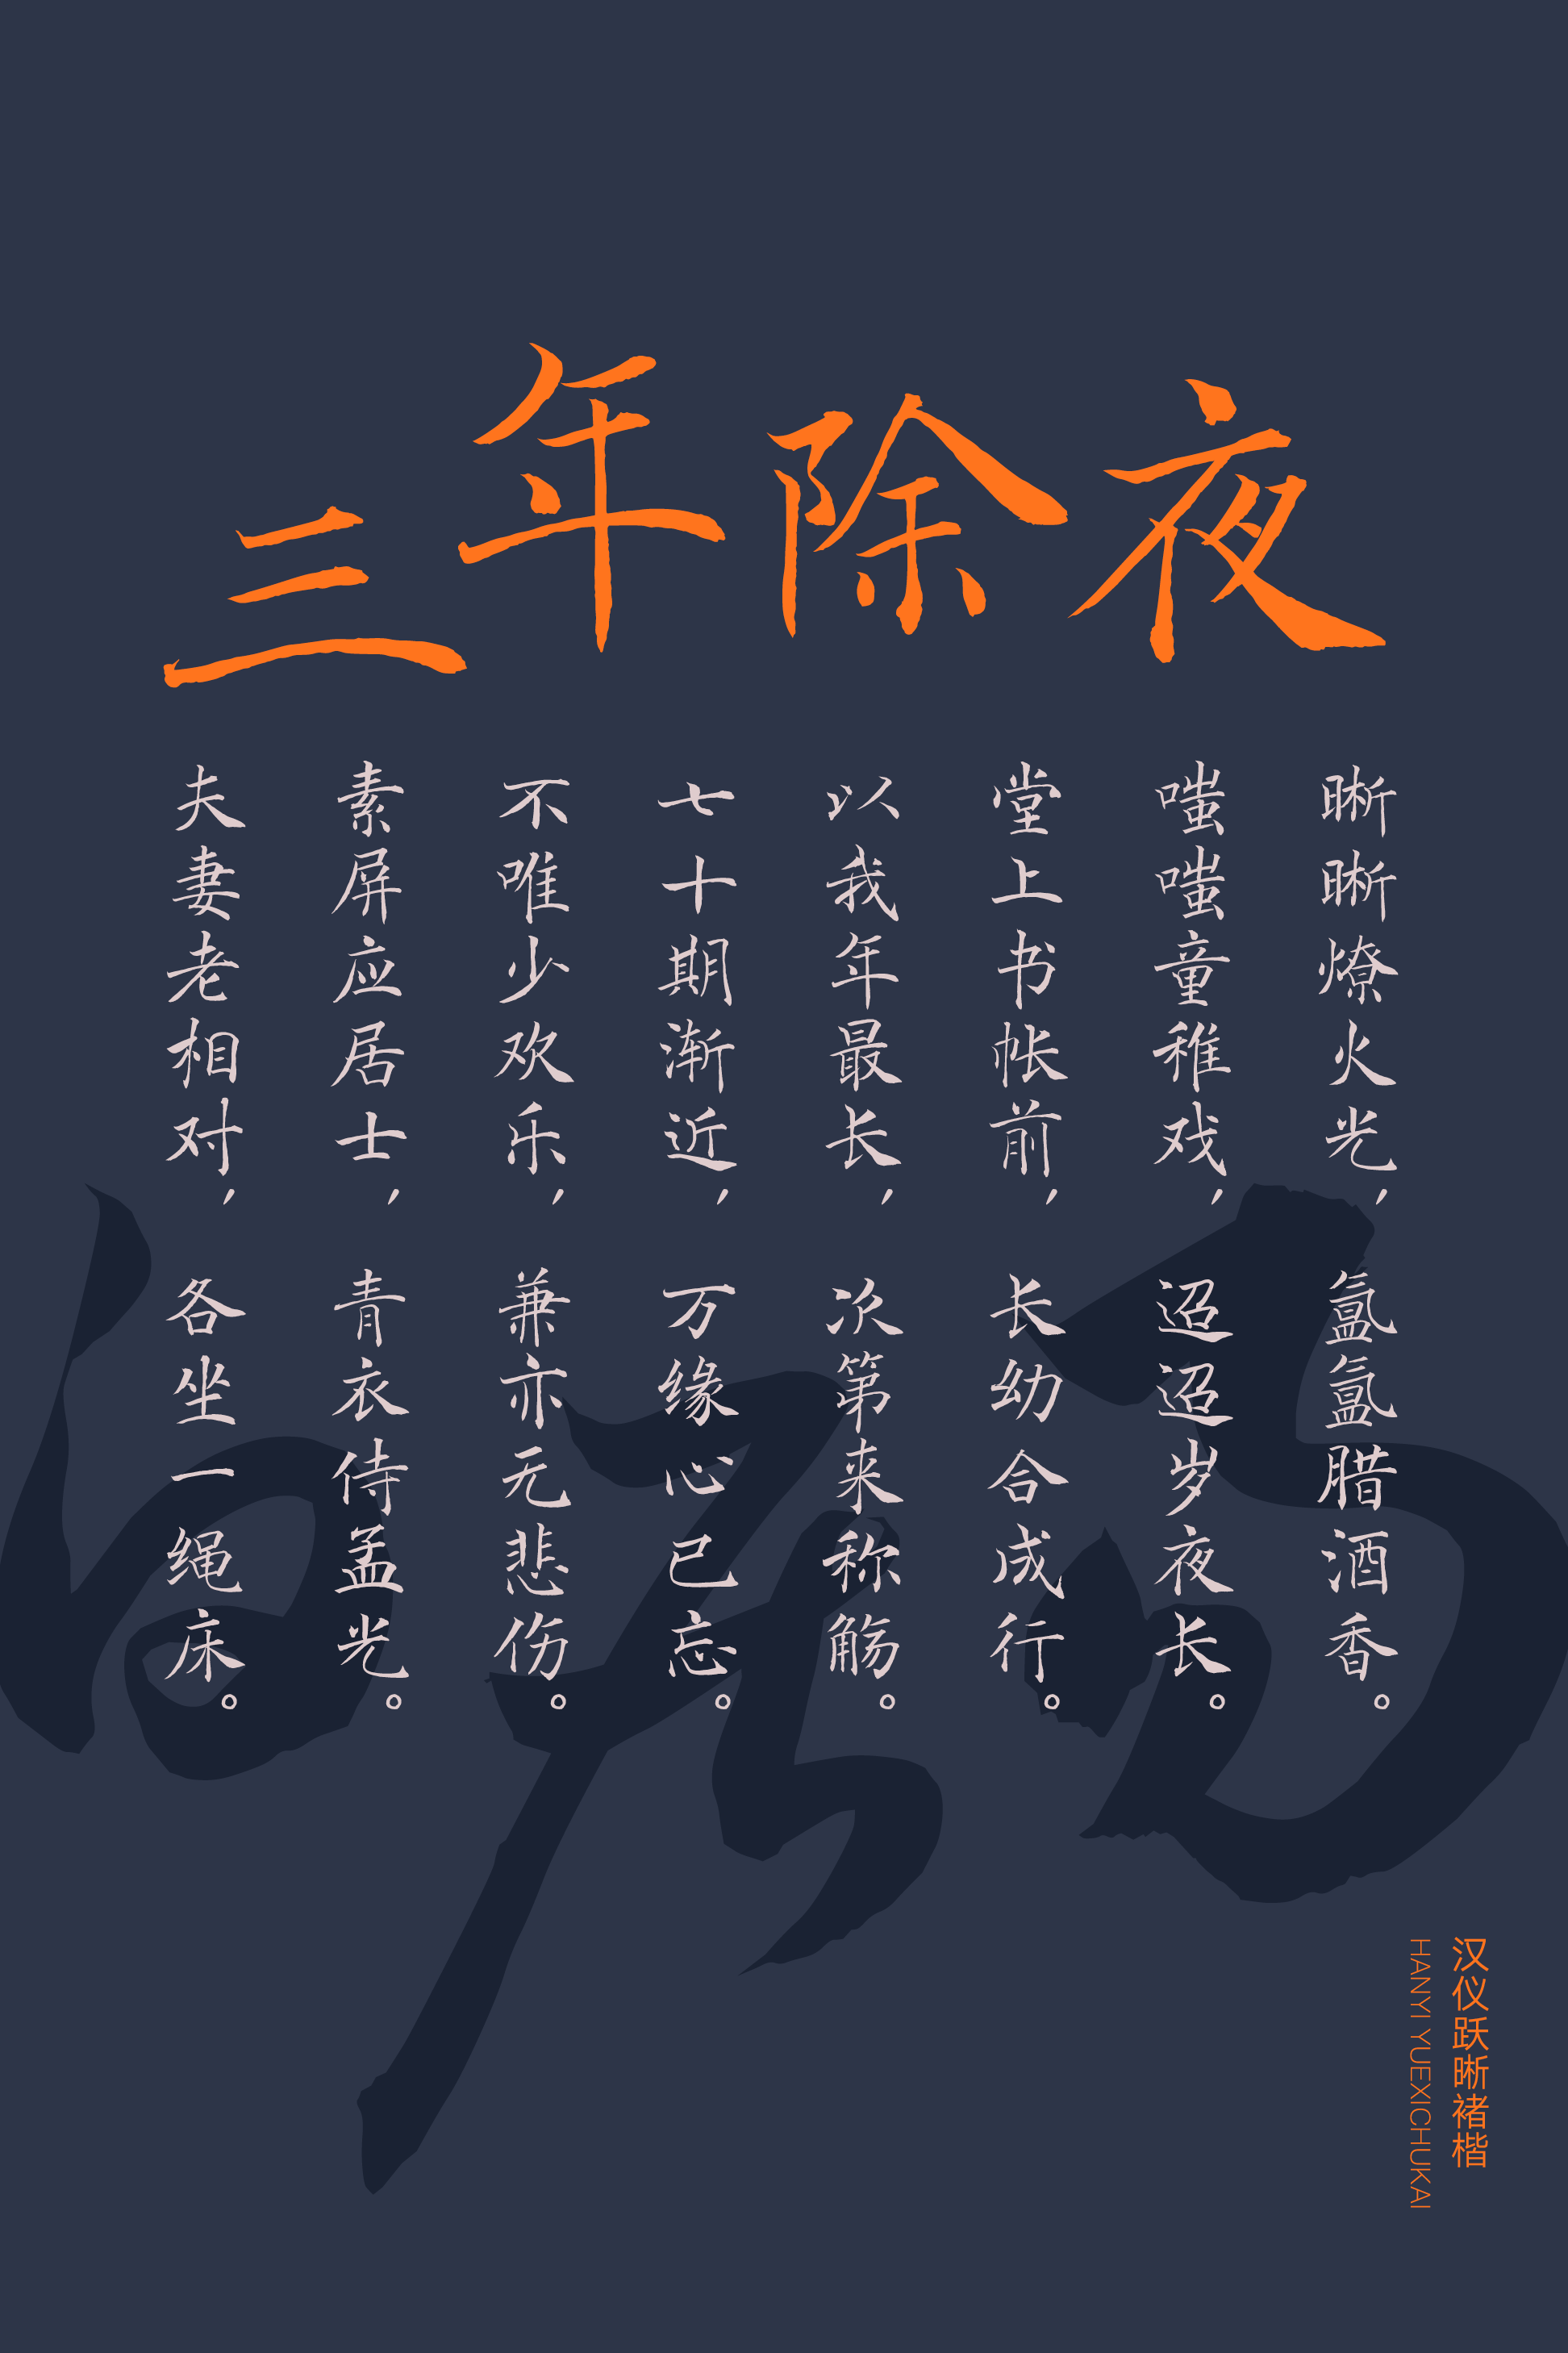 三年除夜
晰晰燎火光，氲氲腊酒香。
嗤嗤童稚戏，迢迢岁夜长。
堂上书帐前，长幼合成行。
以我年最长，次第来称觞。
七十期渐近，万缘心已忘。
不唯少欢乐，兼亦无悲伤。
素屏应居士，青衣侍孟光。
夫妻老相对，各坐一绳床。
汉仪跃晰褚楷
HANYI YUEXICHUKAI